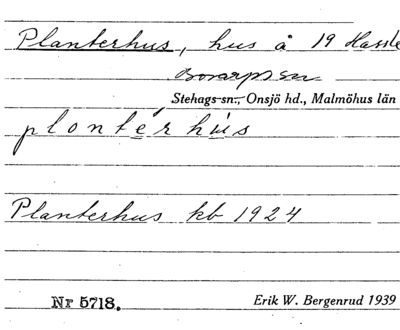 Planterhus, hus å 19 Hassle
Bosarps sn
Stehags sn., Onsjö hd., Malmöhus län
plontérhùs
Planterhus kb 1924
Nr 5718. Erik W. Bergenrud 1939